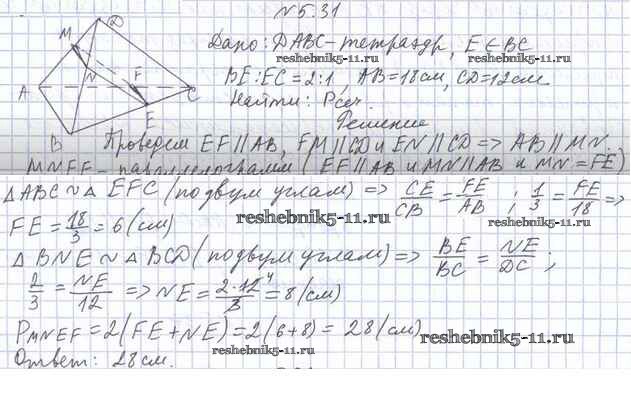 №5.31
Дано: DABC-тетраэдр, E∈BC
reshebnik5-11.ru
BE:EC=2:1, AB=18см, CD=12см.
Найти: Pсеч.
reshebnik5-11.ru
Решение
M D N F A C E B
Проведем EF∥AB, FM∥CD и EN∥CD => AB∥MN.
MNEF - параллелограмм (EF∥AB и MN∥AB и MN=FE)
△ABC ~ △EFC (по двум углам) => CE/CB = FE/AB ; 1/3 = FE/18 =>
FE = 18/3 = 6 (см)
reshebnik5-11.ru
△BNE ~ △BCD (по двум углам) => BE/BC = NE/DC ;
2/3 = NE/12 => NE = 2·12⁴/3 = 8 (см)
reshebnik5-11.ru
PMNEF = 2(FE+NE) = 2(6+8) = 28 (см)
reshebnik5-11.ru
Ответ: 28 см.